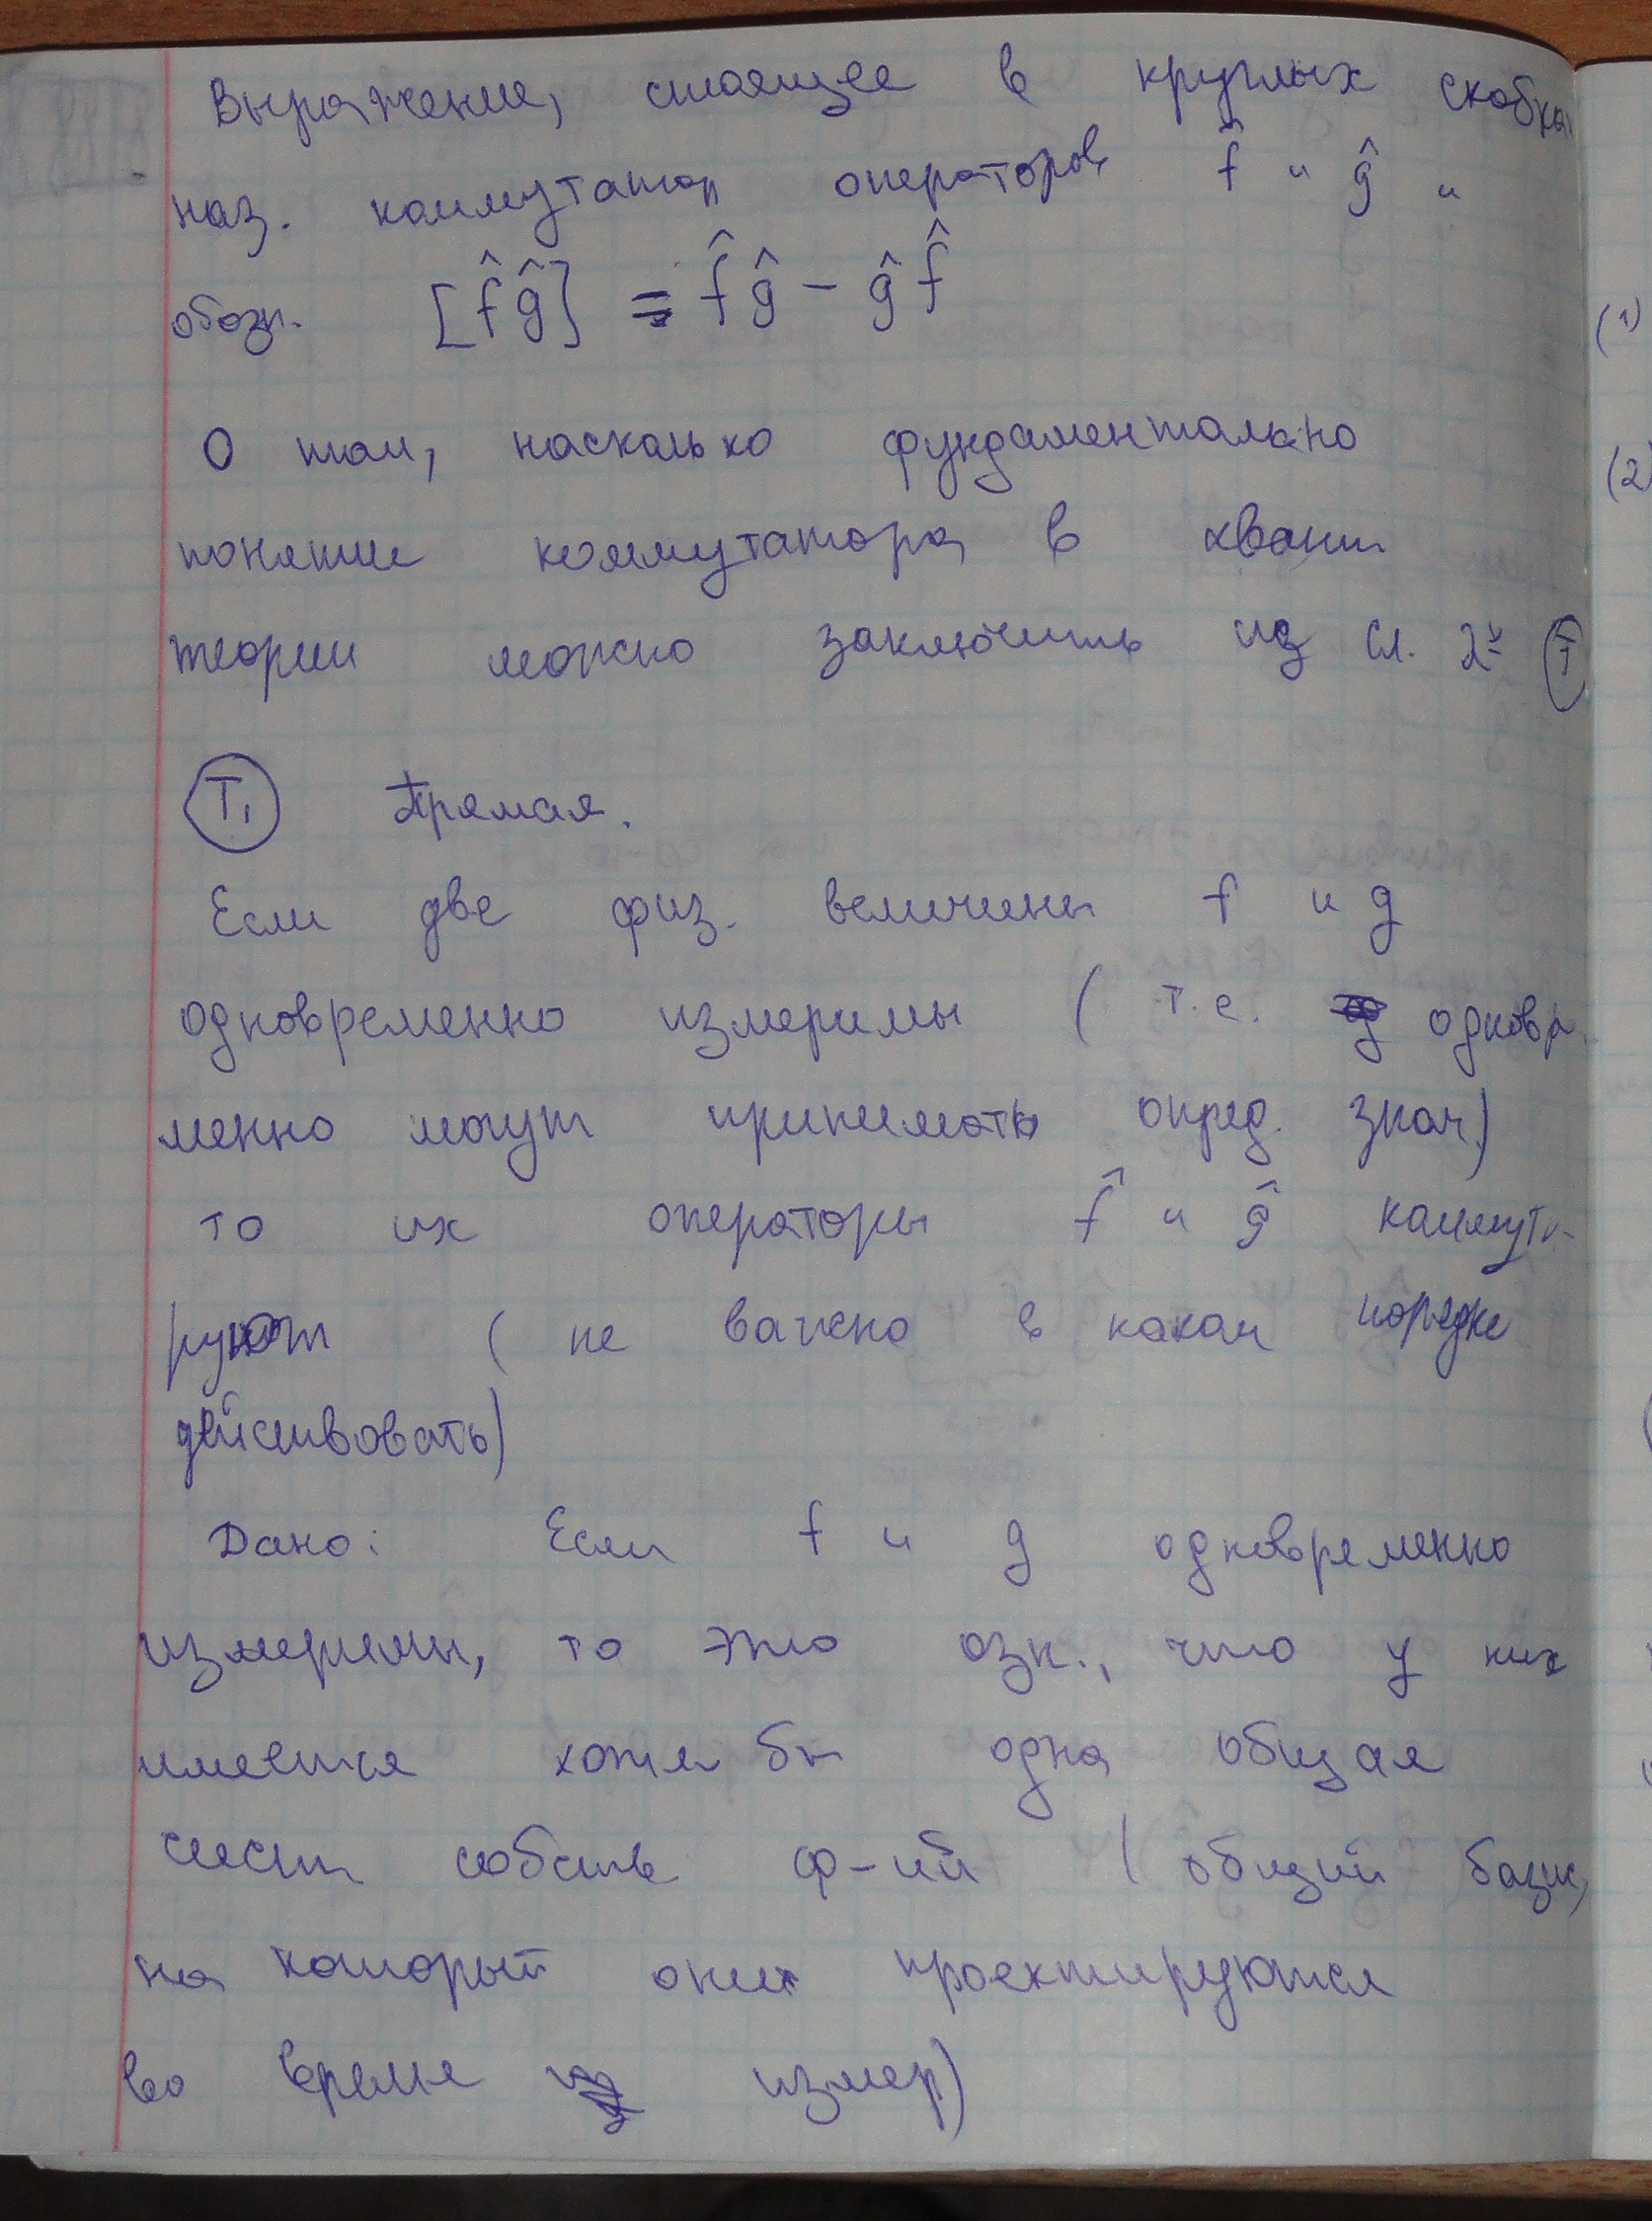 Выражение, стоящее в круглых скобках
наз. коммутатор операторов f̂ и ĝ и
обозн. [f̂ĝ] = f̂ĝ - ĝf̂
О том, насколько фундаментально
понятие коммутатора в квант
теории можно заключить из сл. 2х Т
Т1 Прямая.
Если две физ. величины f и g
одновременно измеримы (т.е. одновр.
менно могут принимать опред. знач.)
то их операторы f̂ и ĝ коммути-
руют (не важно в каком порядке
действовать)
Дано: Если f и g одновременно
измеримы, то это озн., что у них
имеется хотя бы одна общая
сист собств ф-ий (общий базис,
на который они проектируются
во время измер)
(1)
(2)